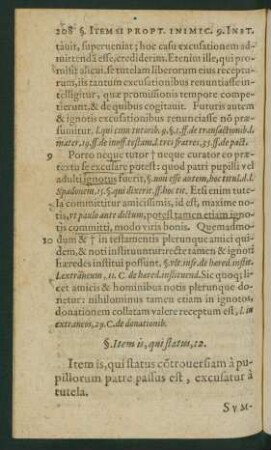 208 §. ITEM SI PROPT. INIMIC. 9. INST.
tauit, superueniat; hoc casu excusationem ad-
mittendā esse, crediderim. Etenim ille, qui pro-
misit alicui, se tutelam liberorum eius receptu-
rum, iis tantum excusationibus renunciasse in-
telligitur, quæ promissionis tempore compe-
tierunt, & de quibus cogitauit. Futuris autem
& ignotis excusationibus renunciasse nō præ-
sumitur. l. qui cum tutorib. 9. §. 1. ff. de transactionib. l.
mater, 19. ff. de inoff. testam. l. tres fratres, 35. ff. de pact.
9 Porro neque tutor † neque curator eo præ-
textu se excusare potest: quod patri pupilli vel
adulti ignotus fuerit, §. non esse autem, hoc titul. d. l.
Spadonem, 15. §. qui dixerit. ff. hoc tit. Etsi enim tute-
la committitur amicissimis, id est, maxime no-
tis, vt paulo ante dictum, potest tamen etiam igno-
tis committi, modo viris bonis. Quemadmo-
10 dum & † in testamentis plerunque amici qui-
dem, & noti instituuntur: recte tamen & ignoti
hæredes institui possunt, §. vlt. infr. de hered. instit.
l. extraneum, 11. C. de hered. instituend. Sic quoq; li-
cet amicis & hominibus notis plerunque do-
netur: nihilominus tamen etiam in ignotos,
donationem collatam valere receptum est, l. in
extraneos, 29. C. de donationib.
§. Item is, qui status, 12.
Item is, qui status cōtrouersiam à pu-
pillorum patre passus est, excusatur à
tutela.
SVM-